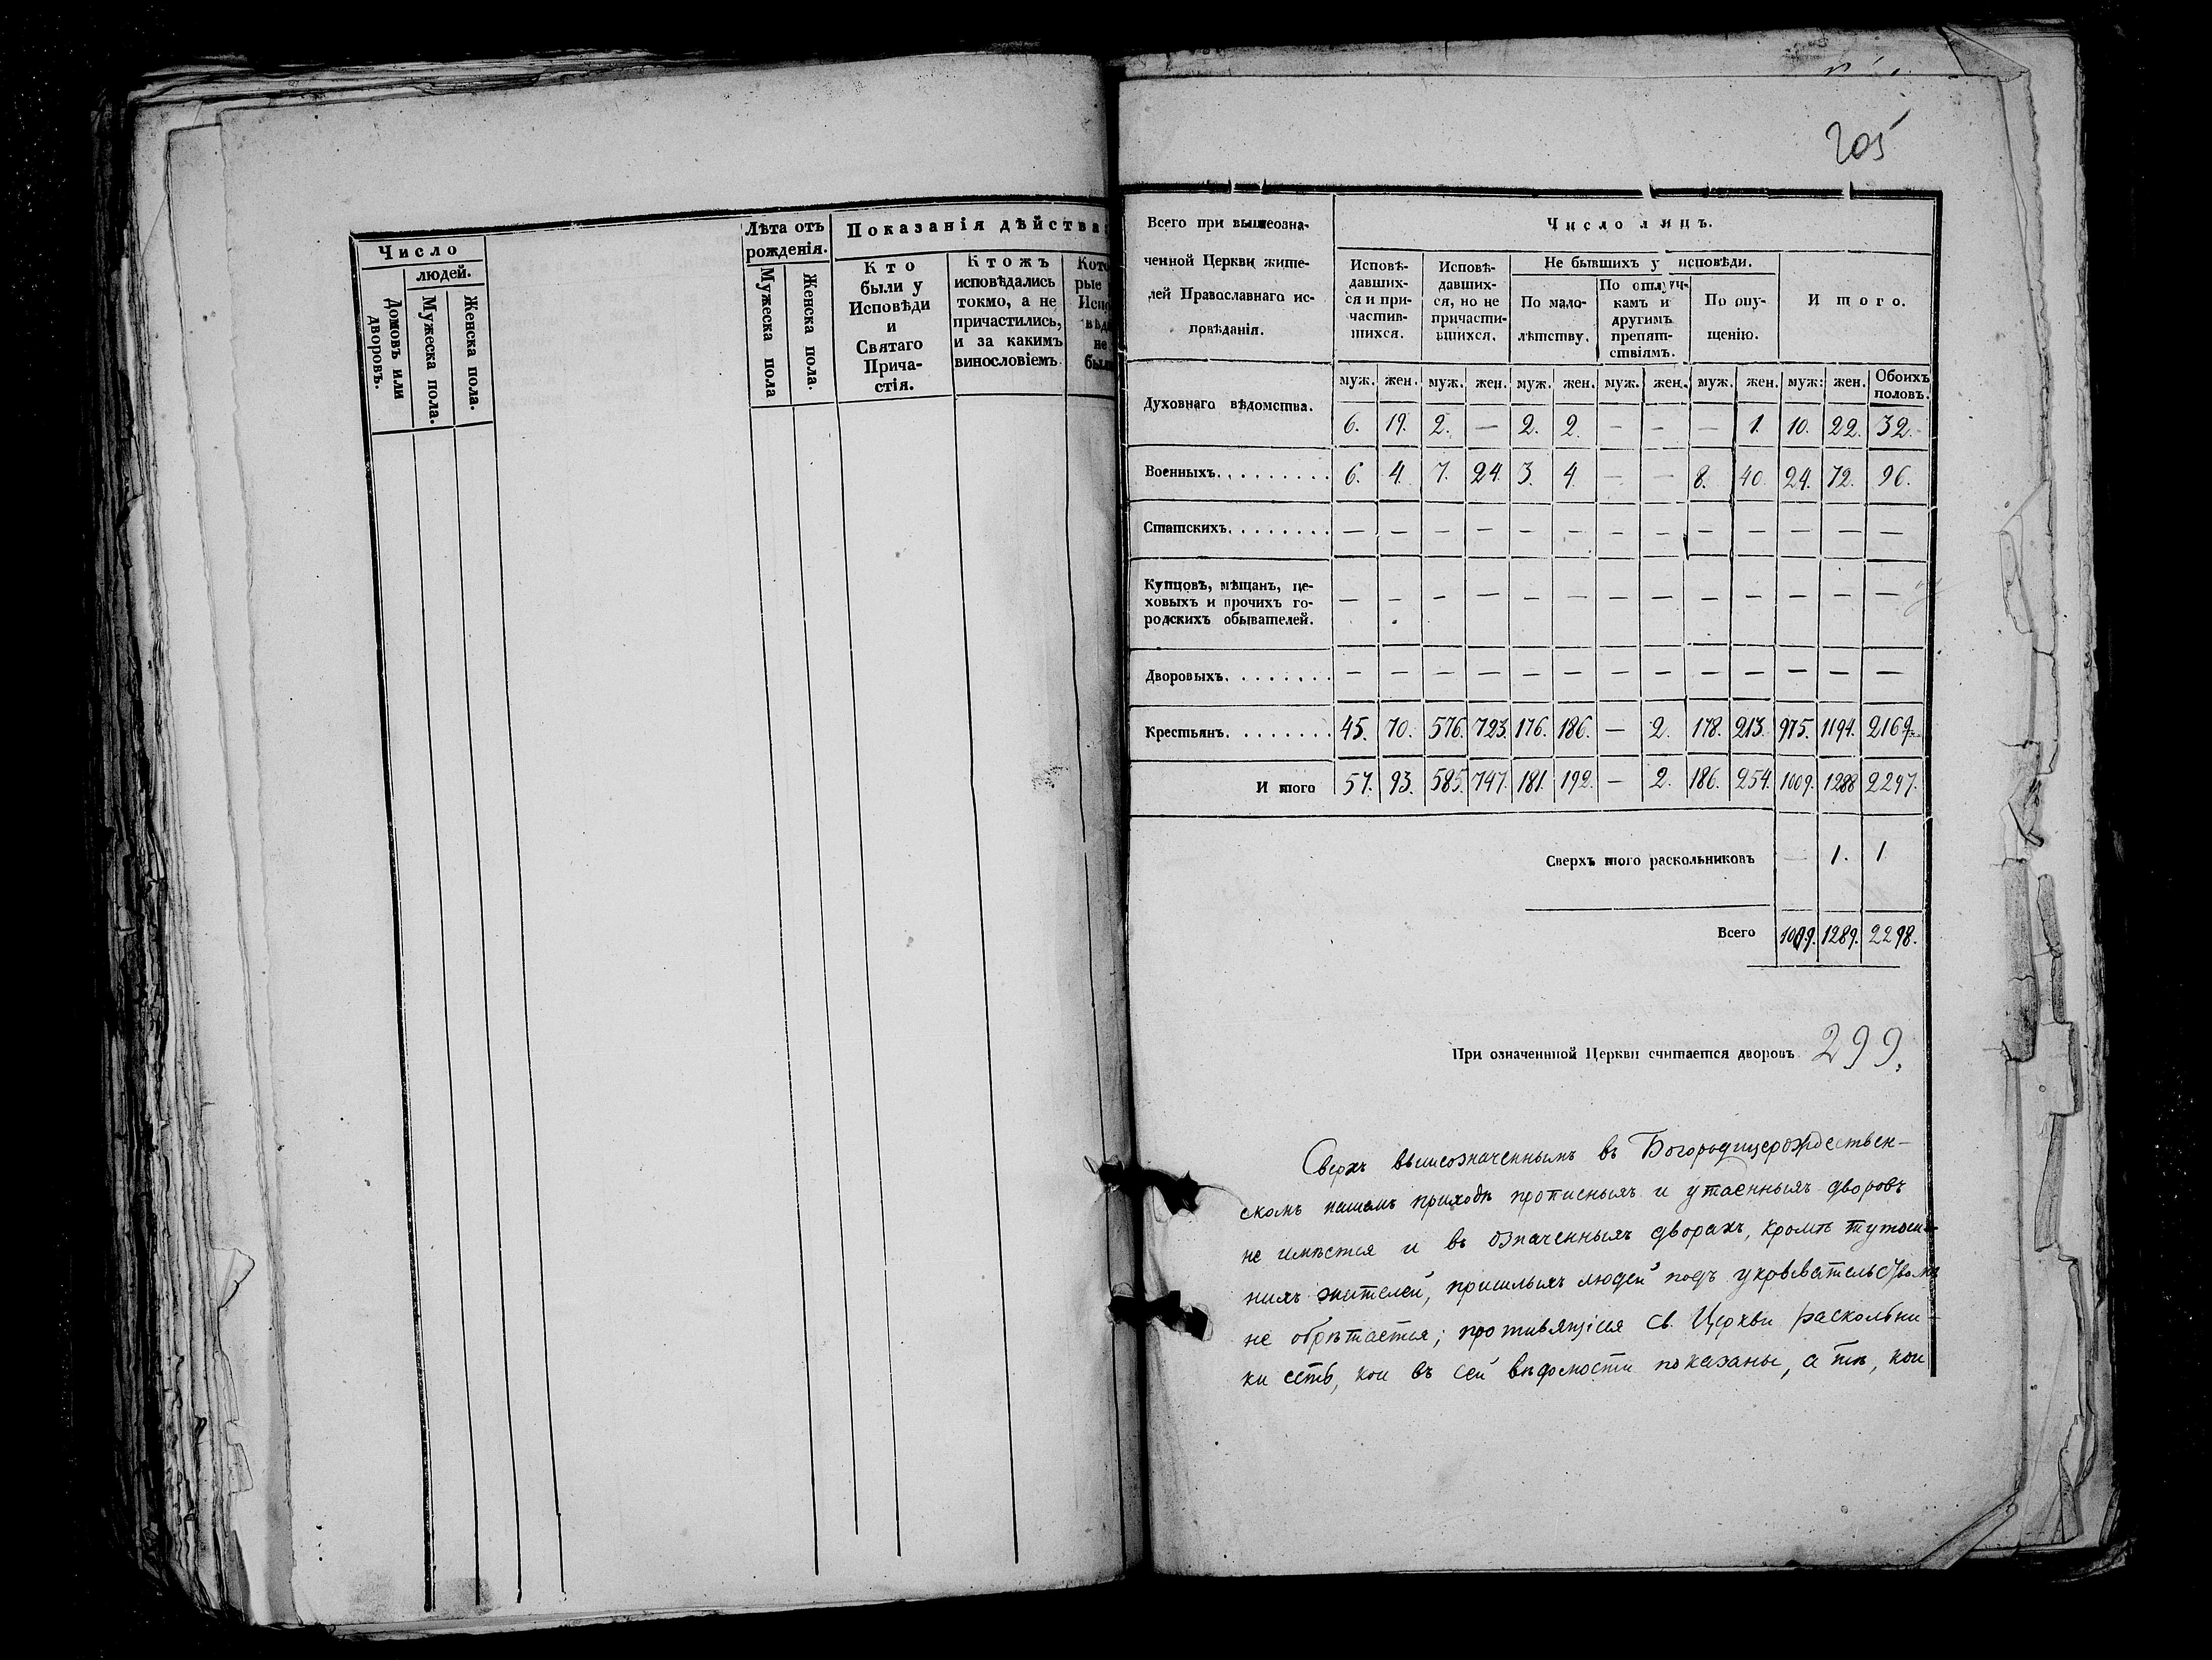 Число
людей.
Домовъ или дворовъ.
Мужеска пола.
Женска пола.
Лѣта отъ
рожденія.
Мужеска пола
Женска пола.
Показанія дѣйства
Кто
были у
Исповѣди
и
Святаго
Прича-
стія.
Ктожъ
исповѣдались
токмо, а не
причастились,
и за какимъ
винословіемъ
Кото
рые
Испо
вѣд
не
был
205
Всего при вышеозна-
ченной Церкви жите-
лей Православнаго ис-
повѣданія.
Число лицъ.
Исповѣ-
давших-
ся и при-
частив-
шихся.
Исповѣ-
давших-
ся, но не
причасти-
вшихся.
Не бывшихъ у исповѣди.
По мало-
лѣтству.
По отлуч-
камъ и
другимъ
препят-
ствіямъ.
По опу-
щенію.
Итого.
муж. жен. муж. жен. муж. жен. муж. жен. муж. жен. муж: жен. Обоихъ половъ.
Духовнаго вѣдомства. 6. 19. 2. — 2. 2. — — — 1. 10. 22. 32.
Военныхъ......... 6. 4. 7. 24. 3. 4. — — 8. 40. 24. 72. 96.
Статскихъ........ — — — — — — — — — — — — —
Купцовъ, мѣщанъ, це-
ховыхъ и прочихъ го-
родскихъ обывателей. — — — — — — — — — — — — —
Дворовыхъ........ — — — — — — — — — — — — —
Крестьянъ........ 45. 70. 576. 723. 176. 186. — 2. 178. 213. 975. 1194. 2169.
Итого 57. 93. 585. 747. 181. 192. — 2. 186. 254. 1009. 1288 2297.
Сверхъ того раскольниковъ — 1. 1
Всего 1009. 1289. 2298.
При означеннной Церкви считается дворовъ 299.
Сверхъ вышеозначеннымъ въ Богородицерождествен-
скомъ нашемъ приходѣ прописныхъ и утаенныхъ дворовъ
не имѣется и въ означенныхъ дворахъ, кромѣ тутош-
нихъ жителей, пришлыхъ людей подъ укрывательствомъ
не обрѣтается; противящіися св. Церкви раскольни-
ки есть, кои въ сей вѣдомости показаны, а тѣ, кои